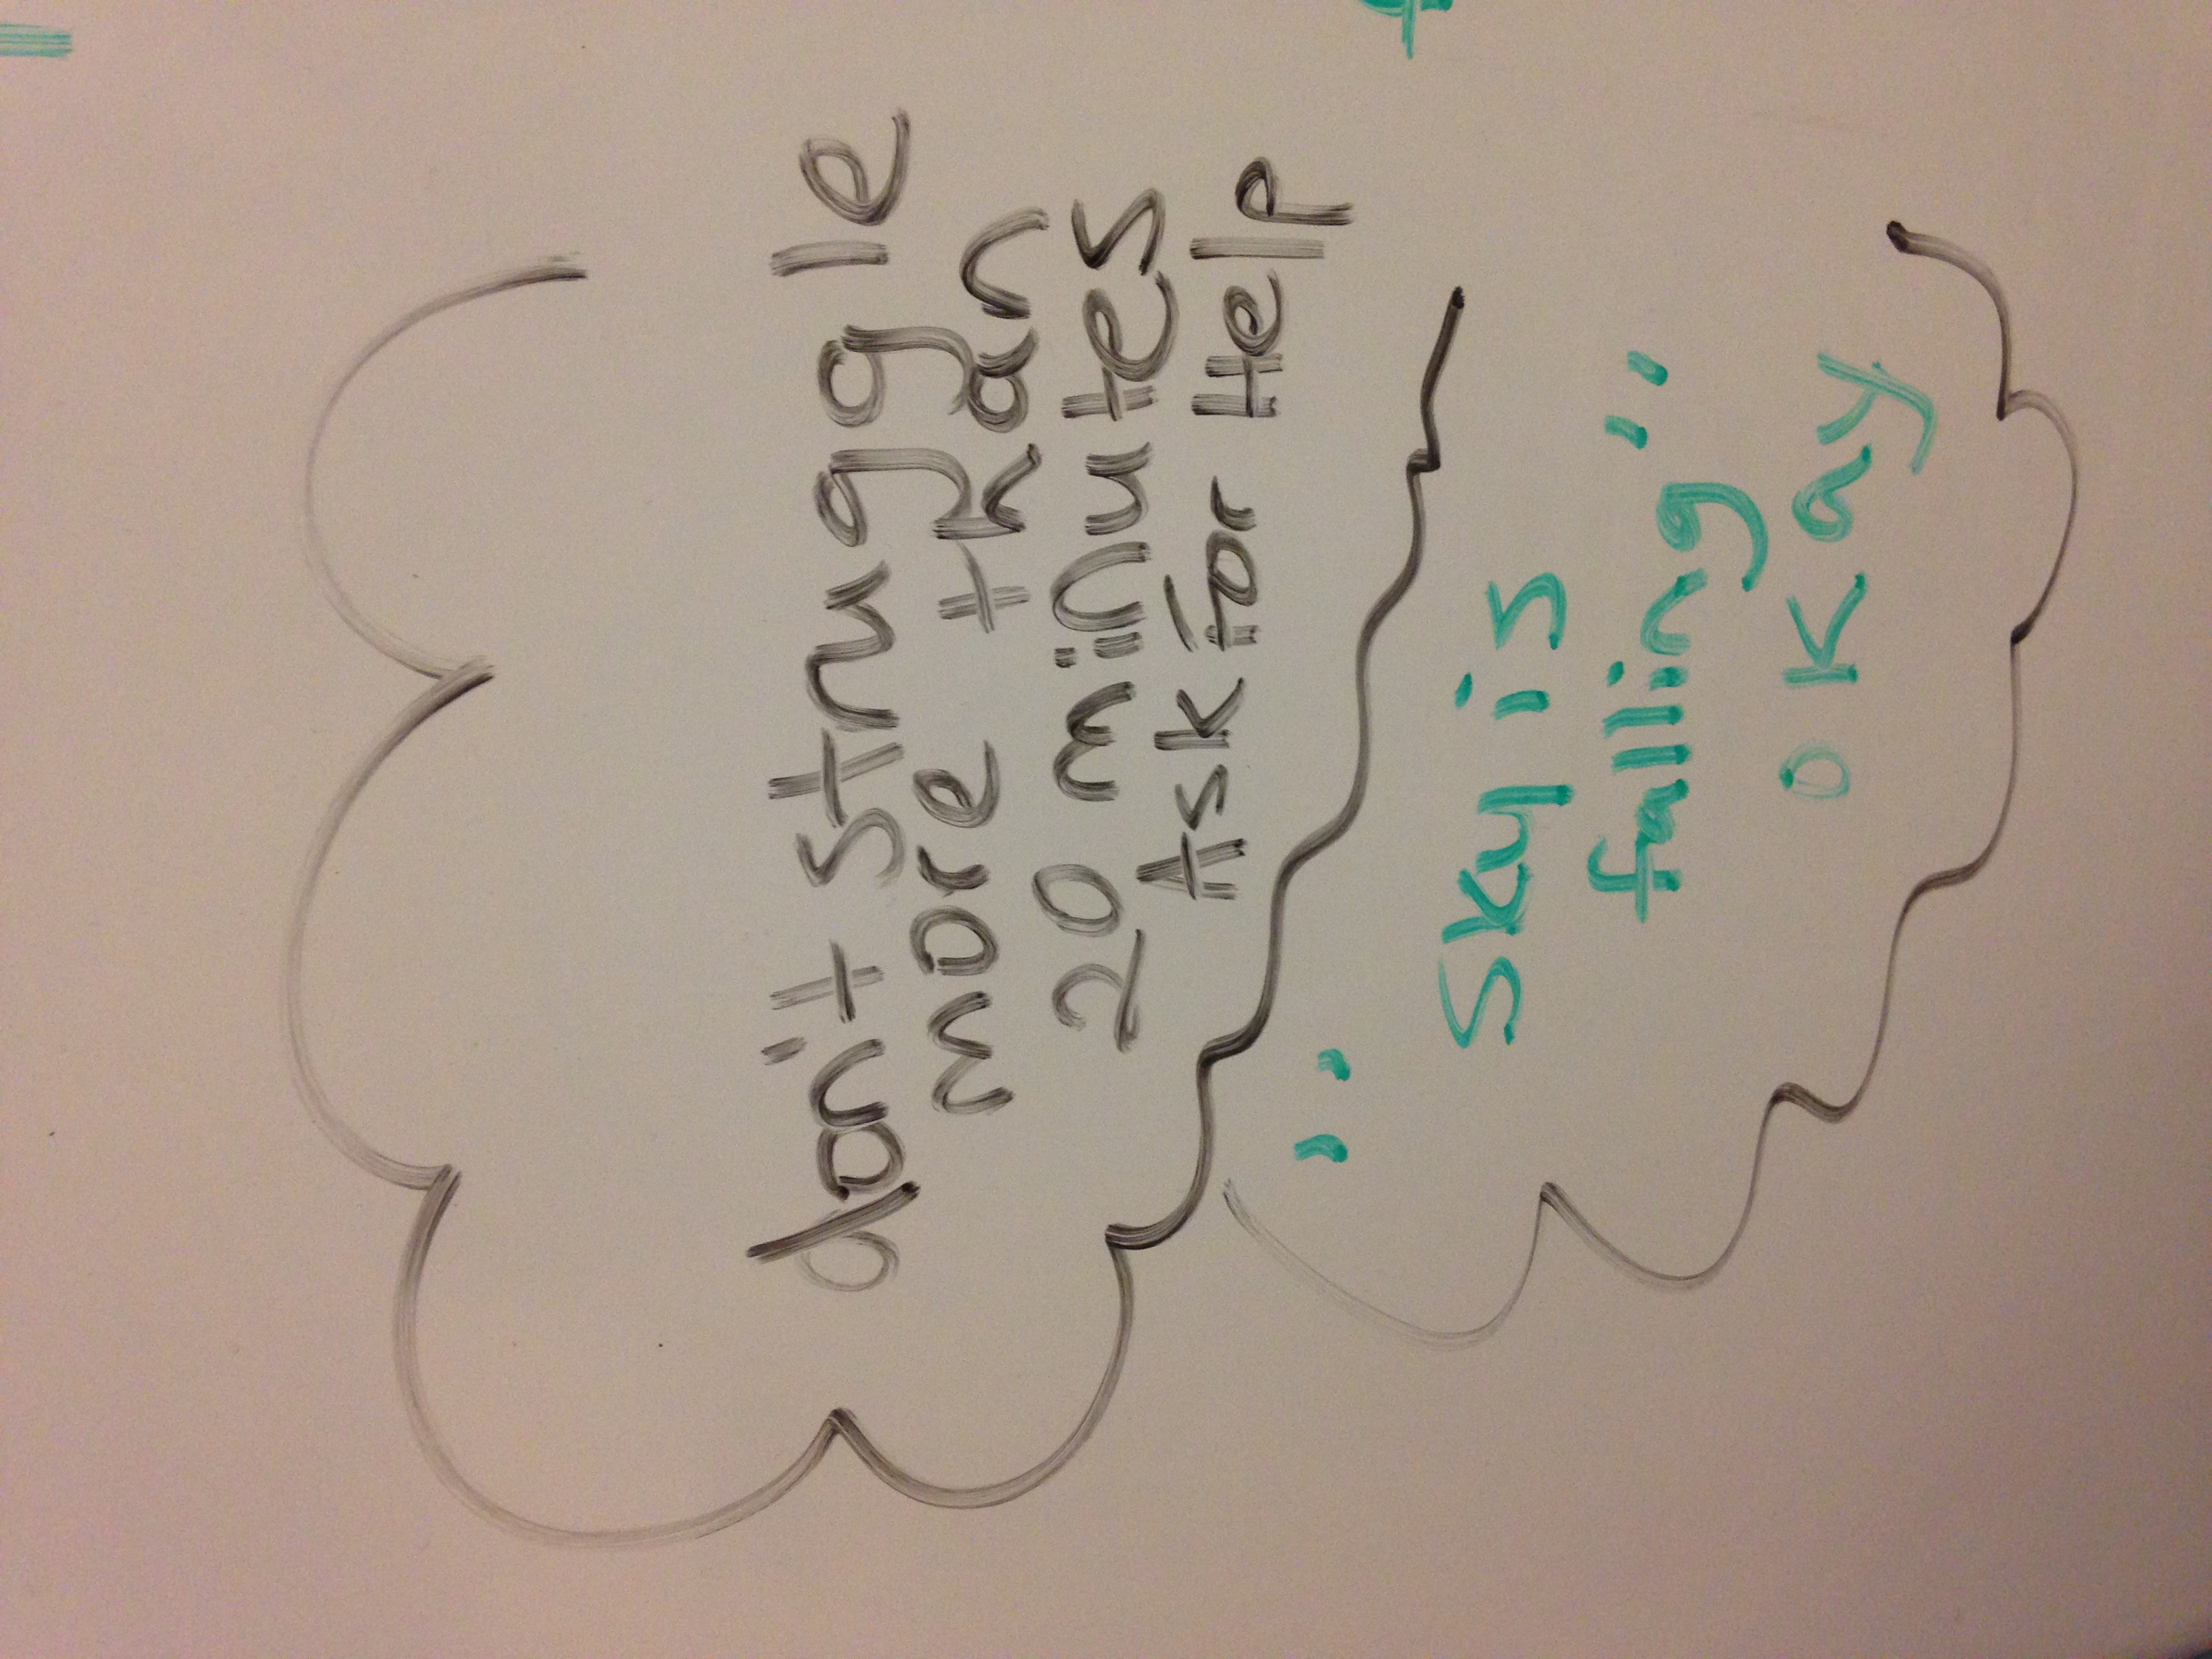 don't struggle
more than
20 minutes
Ask For Help
"
Sky is
falling"
okay